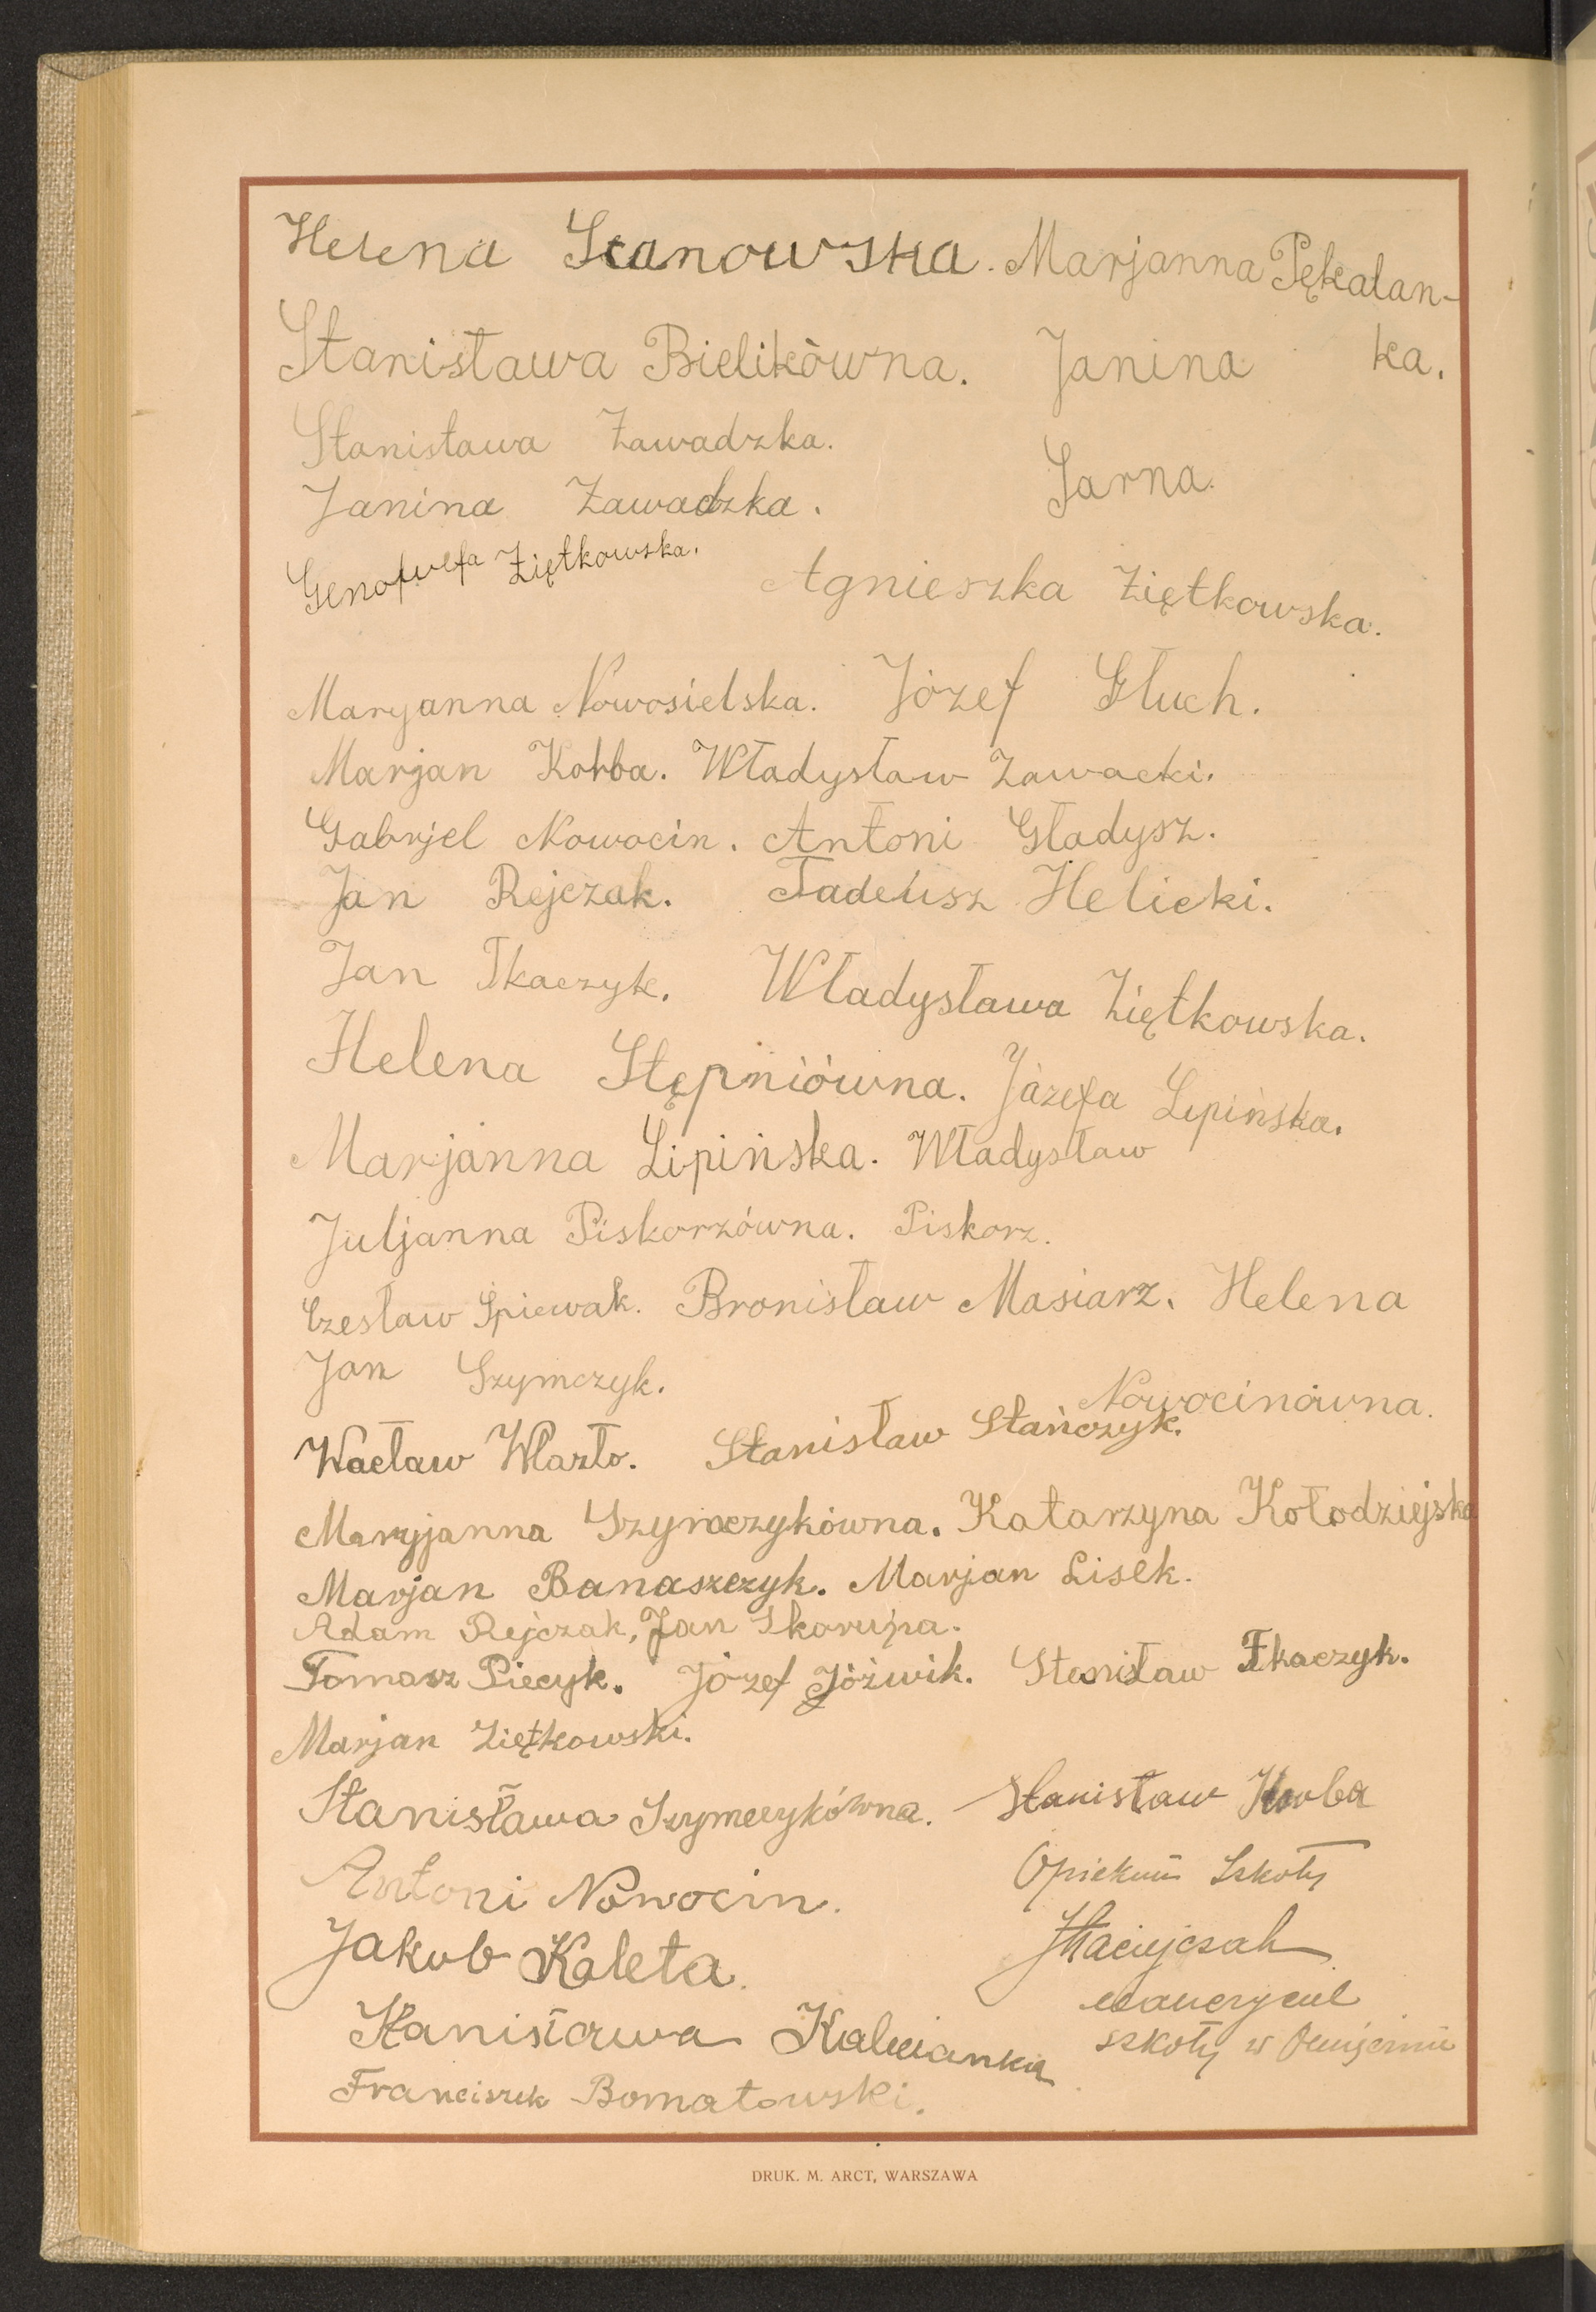 Helena Scanowska. Marjanna Pękalan-
Stanisława Bielikówna. Janina ka.
Stanisława Zawadzka.
Janina Zawadzka. Sarna.
Genofwefa Ziętkowska. Agnieszka Ziętkowska.
Maryanna Nowosielska. Józef Głuch.
Marjan Korba. Władysław Zawacki.
Gabrjel Nowocin. Antoni Gładysz.
Jan Rejczak. Tadeusz Helicki.
Jan Tkaczyk. Władysława Ziętkowska.
Helena Stępniówna. Józefa Lipińska.
Marjanna Lipińska. Władysław
Juljanna Piskorzówna. Piskorz.
Czesław Śpiewak. Bronisław Masiarz. Helena
Jan Szymczyk. Nowocinówna.
Wacław Wlazło. Stanisław Stańczyk.
Maryjanna Szymczykówna. Katarzyna Kołodziejska
Marjan Banaszczyk. Marjan Lisek.
Adam Rejczak, Jan Skorupa.
Tomasz Piecyk. Józef Jóźwik. Stanisław Tkaczyk.
Marjan Ziętkowski.
Stanisława Szymczykówna. Stanisław Korba
Antoni Nowocin. Opiekun Szkoły
Jakub Kaleta. JMaciejczak
nauczyciel
Stanisława Kalecianka szkoły w
Franciszek Bomatowski.
DRUK. M. ARCT, WARSZAWA